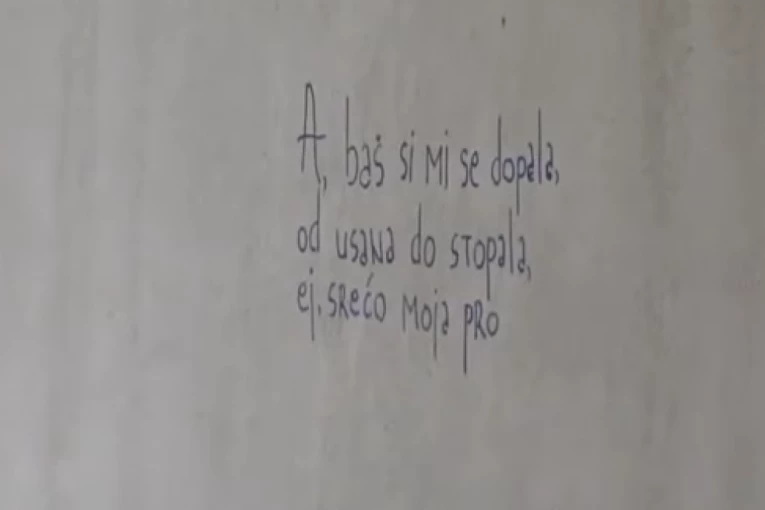 A, baš si mi se dopala,
od usana do stopala,
ej. srećo moja pro